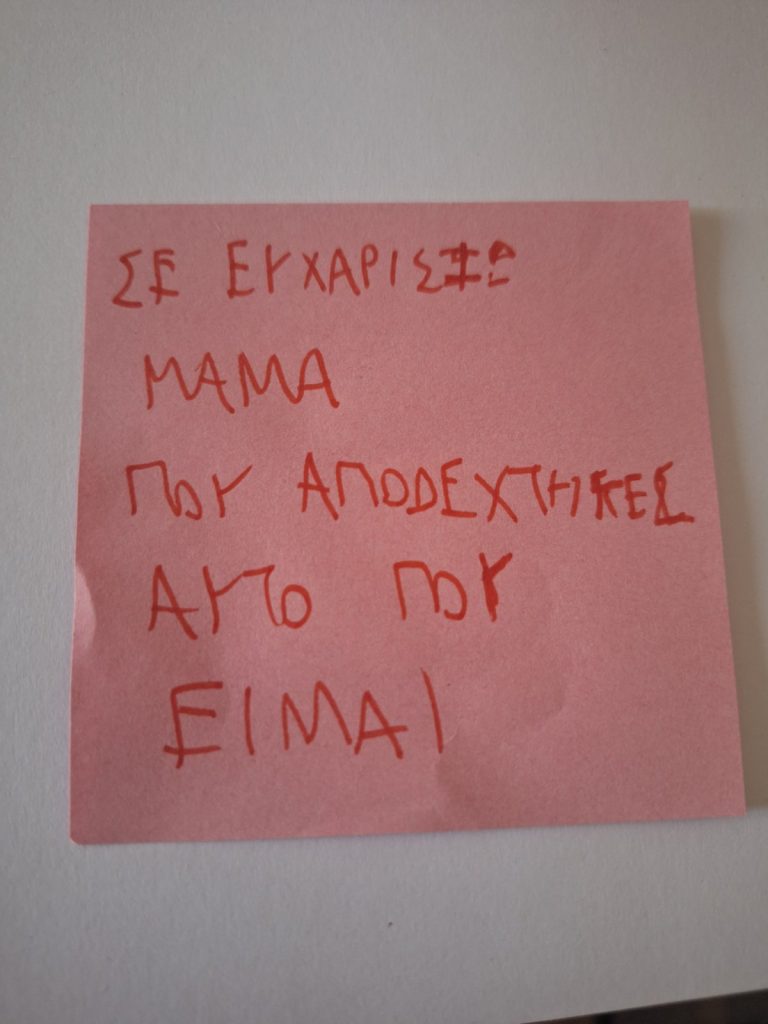 ΣΕ ΕΥΧΑΡΙΣΤΩ
ΜΑΜΑ
ΠΟΥ ΑΠΟΔΕΧΤΗΚΕΣ
ΑΥΤΟ ΠΟΥ
ΕΙΜΑΙ